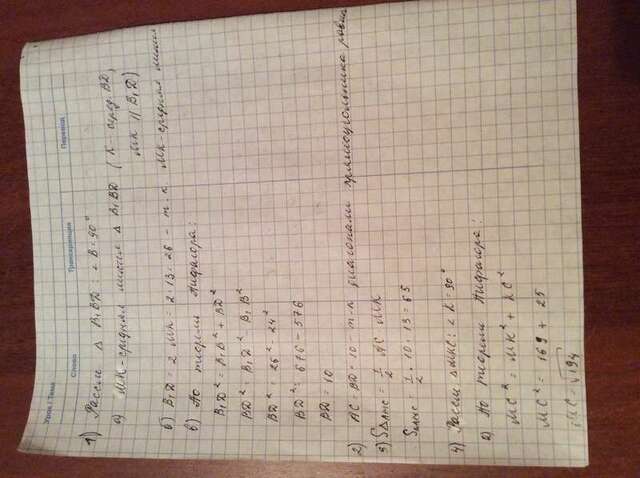 Урок / Тема Слово Транскрипция Перевод
1) Рассм △ B₁BD: ∠B=90°
а) MK-средняя линия △ B₁BD ( K - серед. BD,
MK || B₁D)
б) B₁D = 2 MK = 2·13 = 26 - т.к. MK-средняя линия
в) по теореме Пифагора:
B₁D² = B₁B² + BD²
BD² = B₁D² B₁B²
BD² = 26² 24²
BD² = 676 - 576
BD = 10
2) AC = BD = 10 т-к диагонали прямоугольника равны
3) S△AMC = 1/2 AC MK
SAMC = 1/2 · 10 · 13 = 65
4) Рассм △MKC: ∠K = 90°
а) По теореме Пифагора:
MC² = MK² + KC²
MC² = 169 + 25
MC = √194